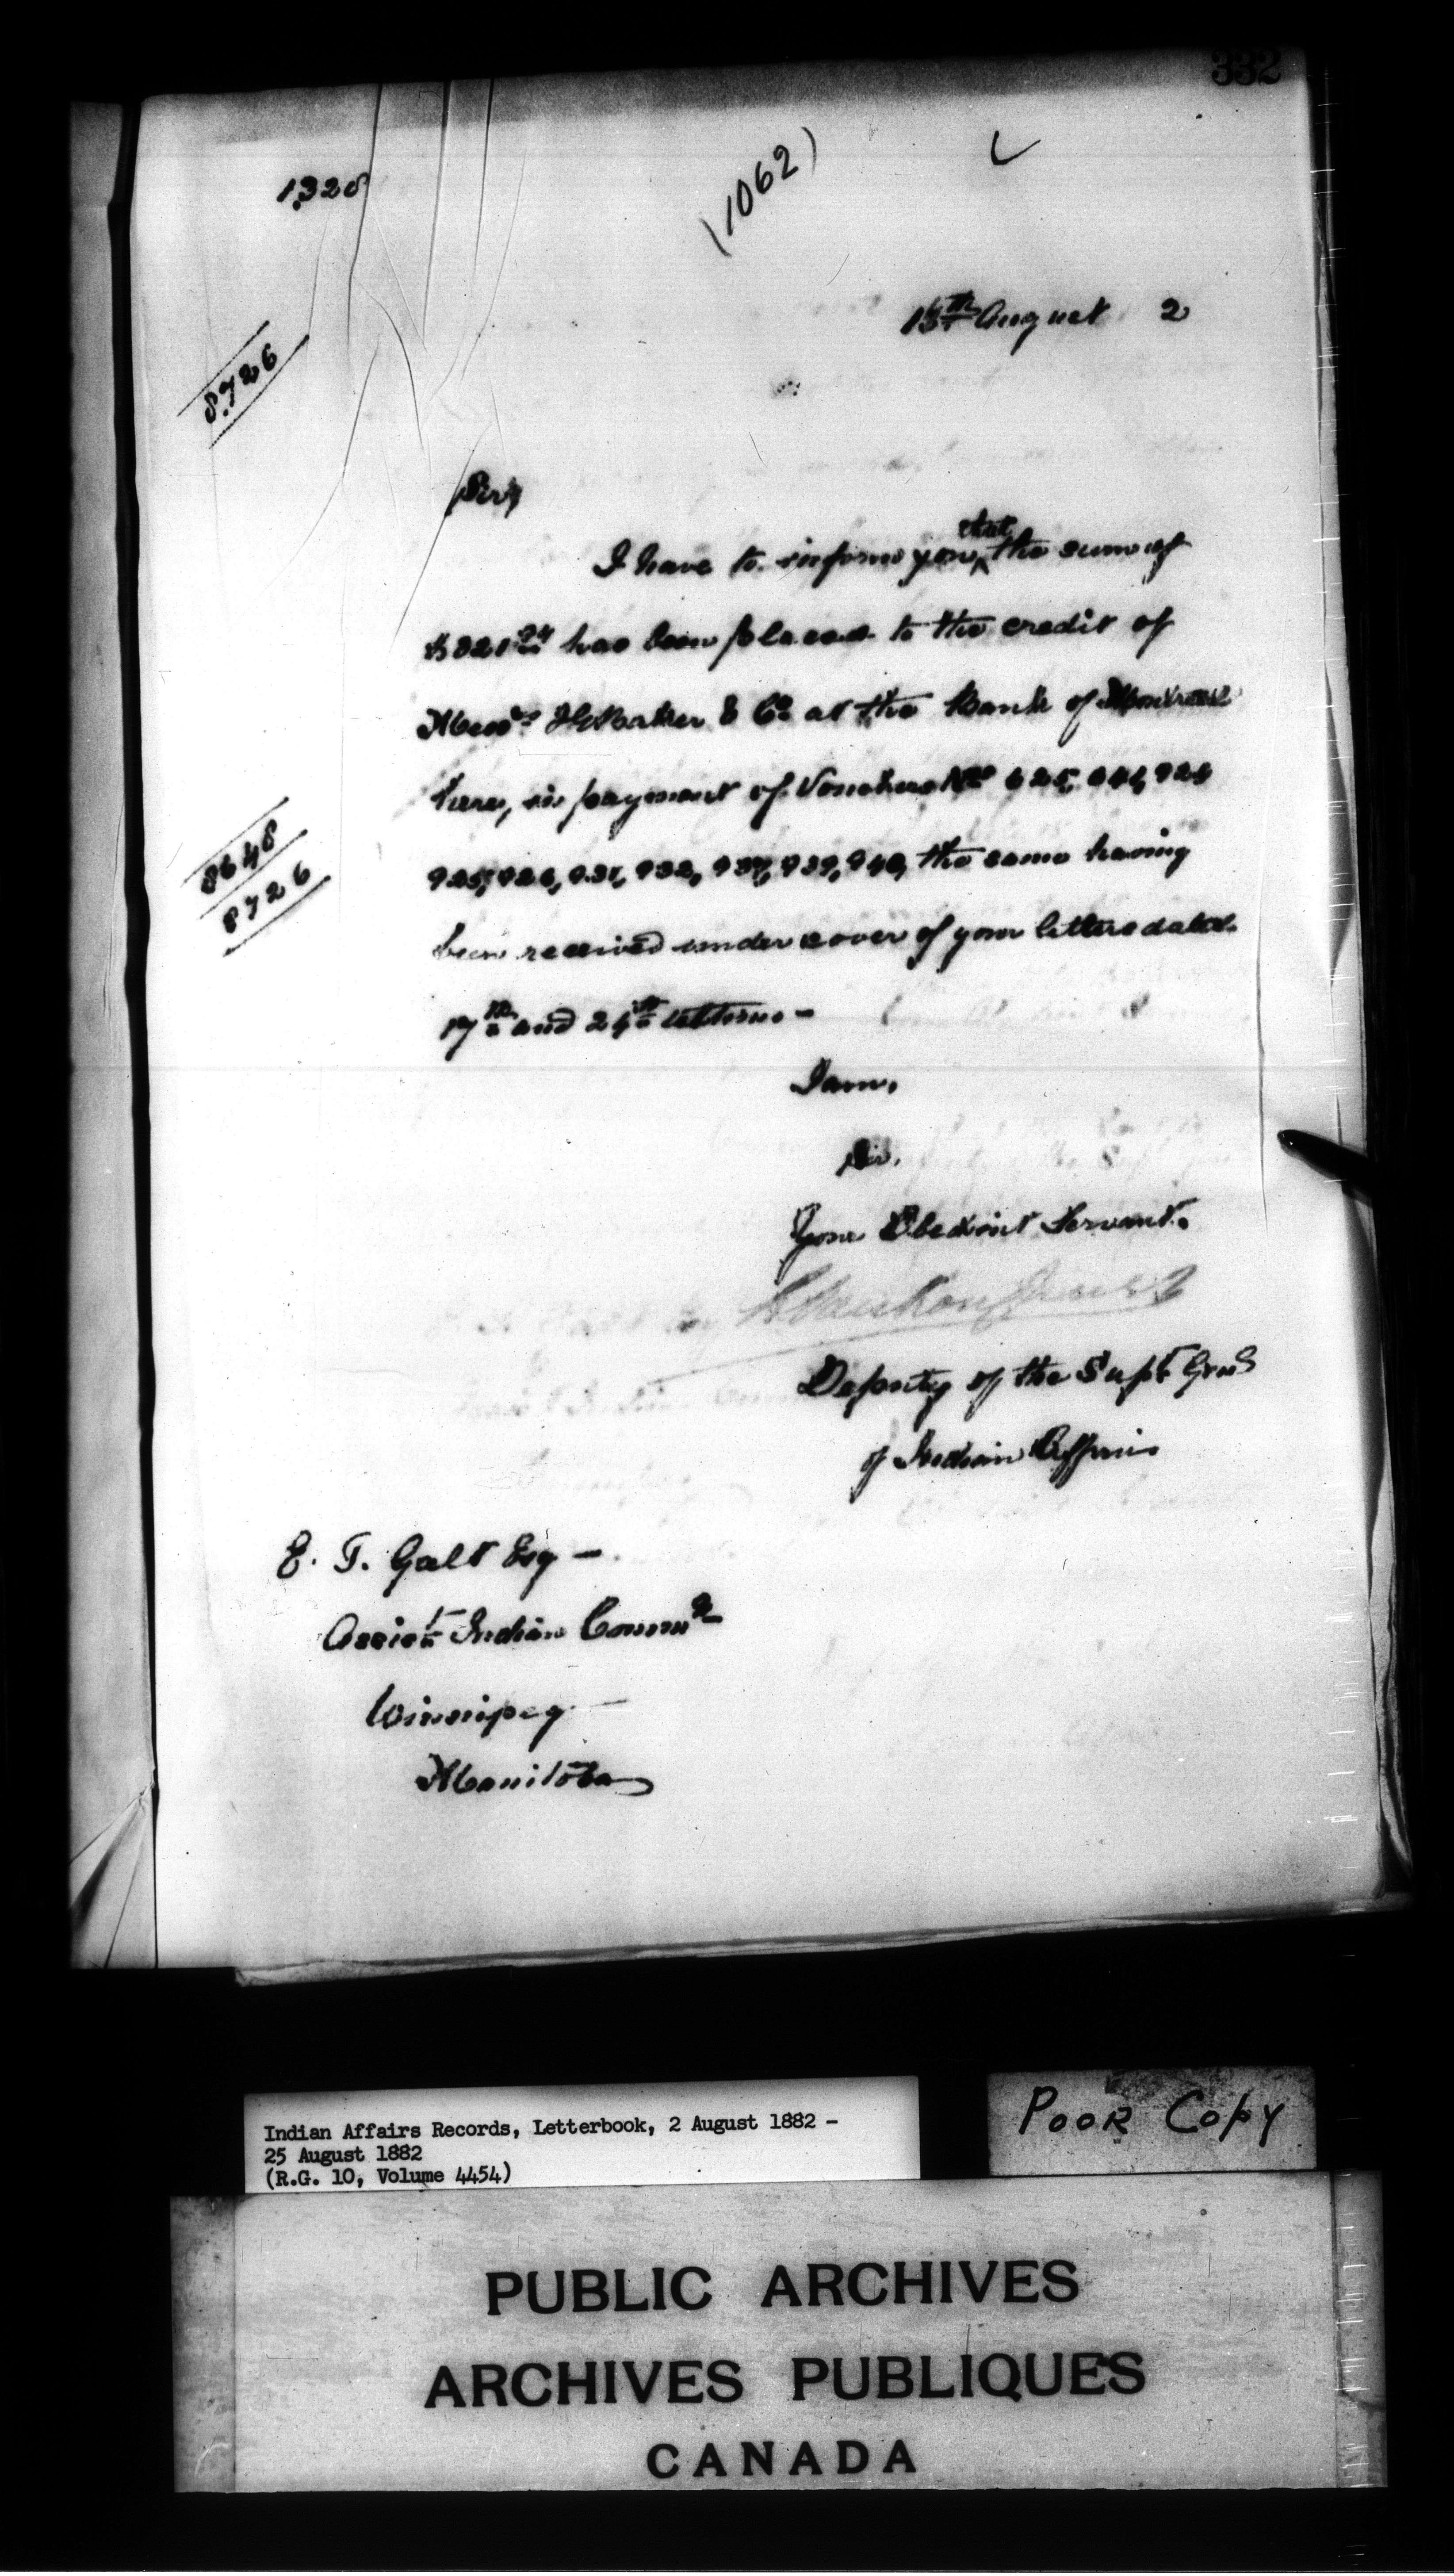 332
(1062)
15th August 2
8726
Sir,
I have to inform you that the sum of
has been placed to the credit of
Messrs & Co. at the Bank of Montreal
here, in payment of Vouchers Nos
925, 926, 931, 932, 939, 940, the same having
been received under cover of your letters dated
17th and 24th ultimo -
I am,
Sir,
Your Obedient Servant.
Deputy of the Supt. Genl
of Indian Affairs
8648
8726
E. T. Galt Esq -
Assist. Indian Commr
Winnipeg -
Manitoba
Indian Affairs Records, Letterbook, 2 August 1882 -
25 August 1882
(R.G. 10, Volume 4454)
POOR COPY
PUBLIC ARCHIVES
ARCHIVES PUBLIQUES
CANADA